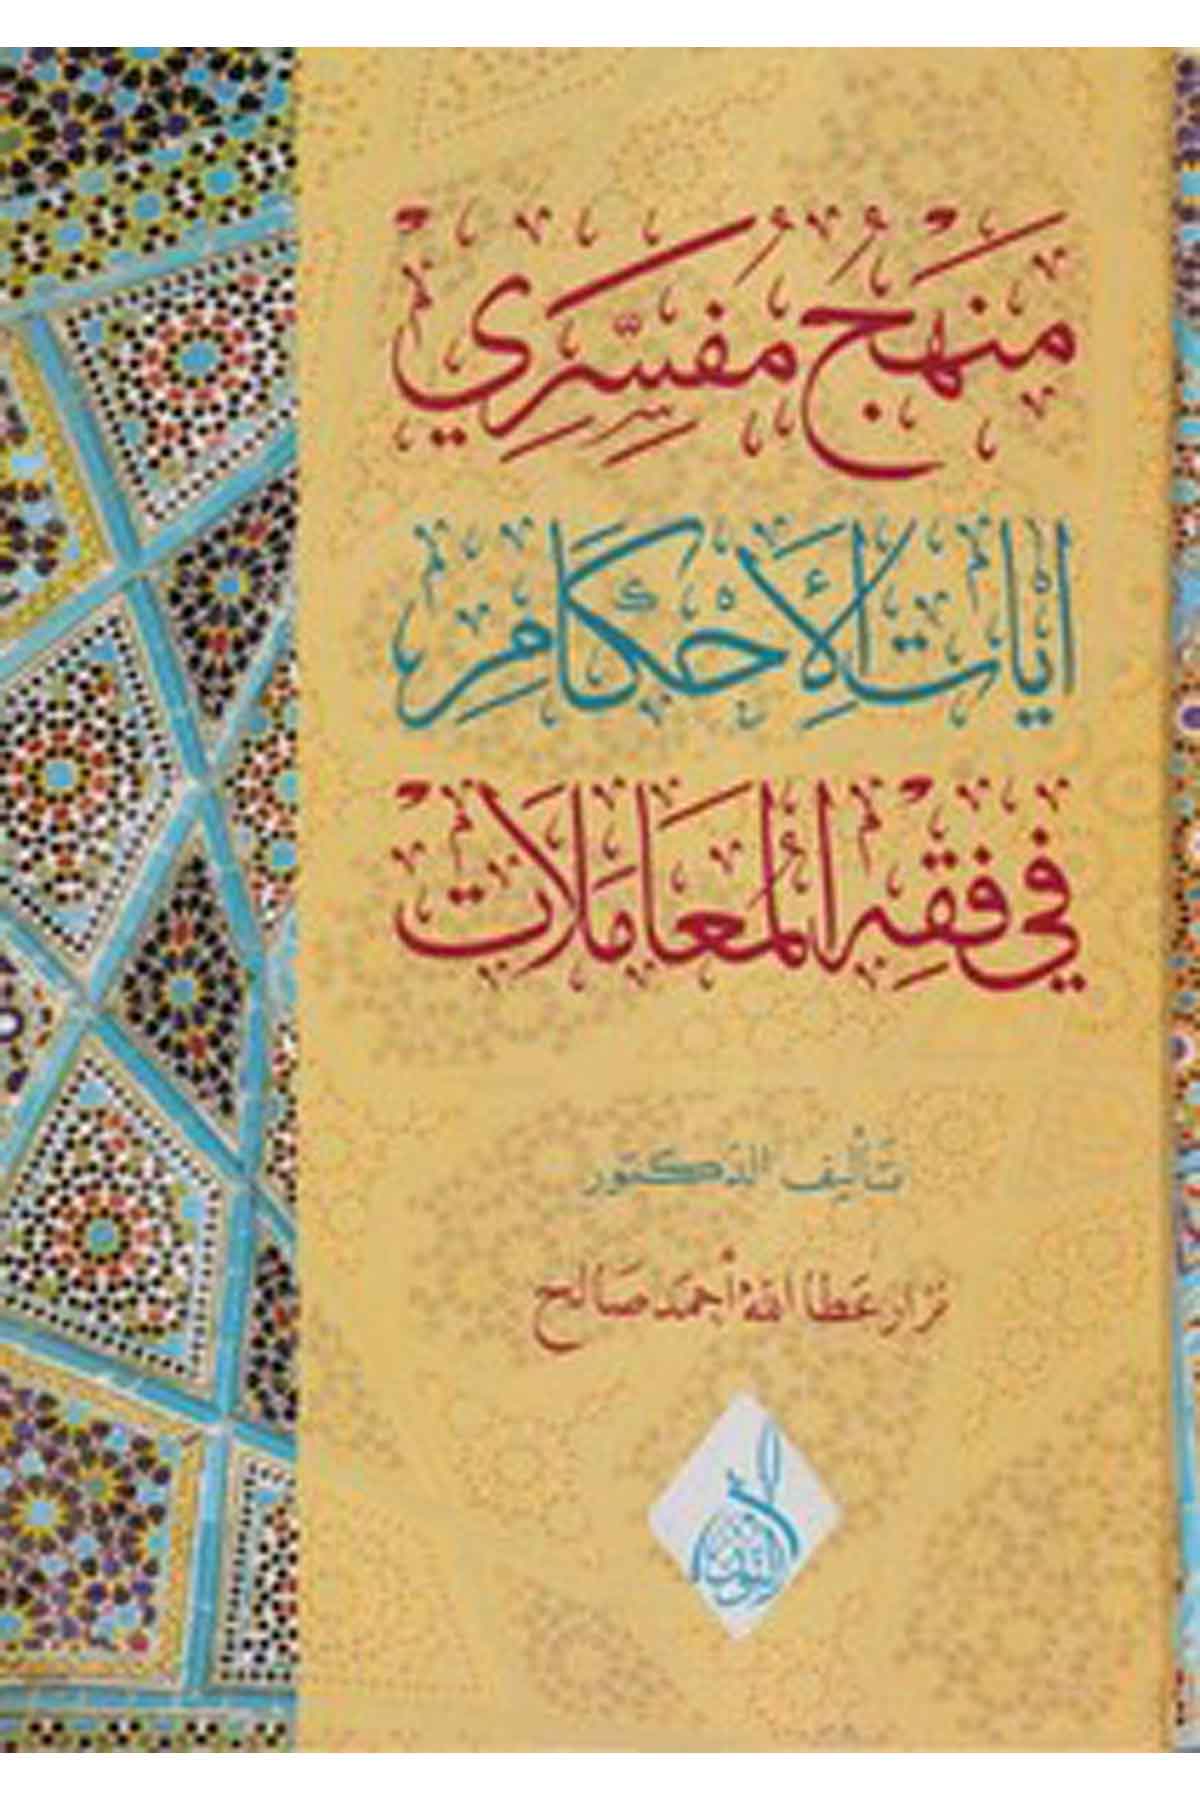 مَنهَجُ مُفَسِّرِي
آيات الأَحكَامِ
في فِقهِ المُعَامَلَات
تأليف الدكتور
نزار عطا الله أحمد صالح
النور